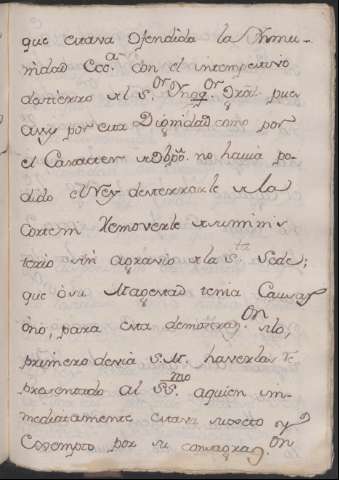 que estava Ofendida la Ynmu-
nidad Ecc.a con el intempestivo
destierro del S.or Ynqq.or Gral. pues
assy por esta Dignidad como por
el Caracter de Obpo. no havia po-
dido el Rey desterrarle de la
Corte ni Removerle de su minis
terio sin agravio de la S.ta Sede;
que ô su Magestad tenia Causas
ôno, para esta demostraz.on si lo,
primero devia S.M. haverlas re
presentado al SS.mo aquien in-
mediatamente estava sugeto y
Cosempto por su consagraz.on